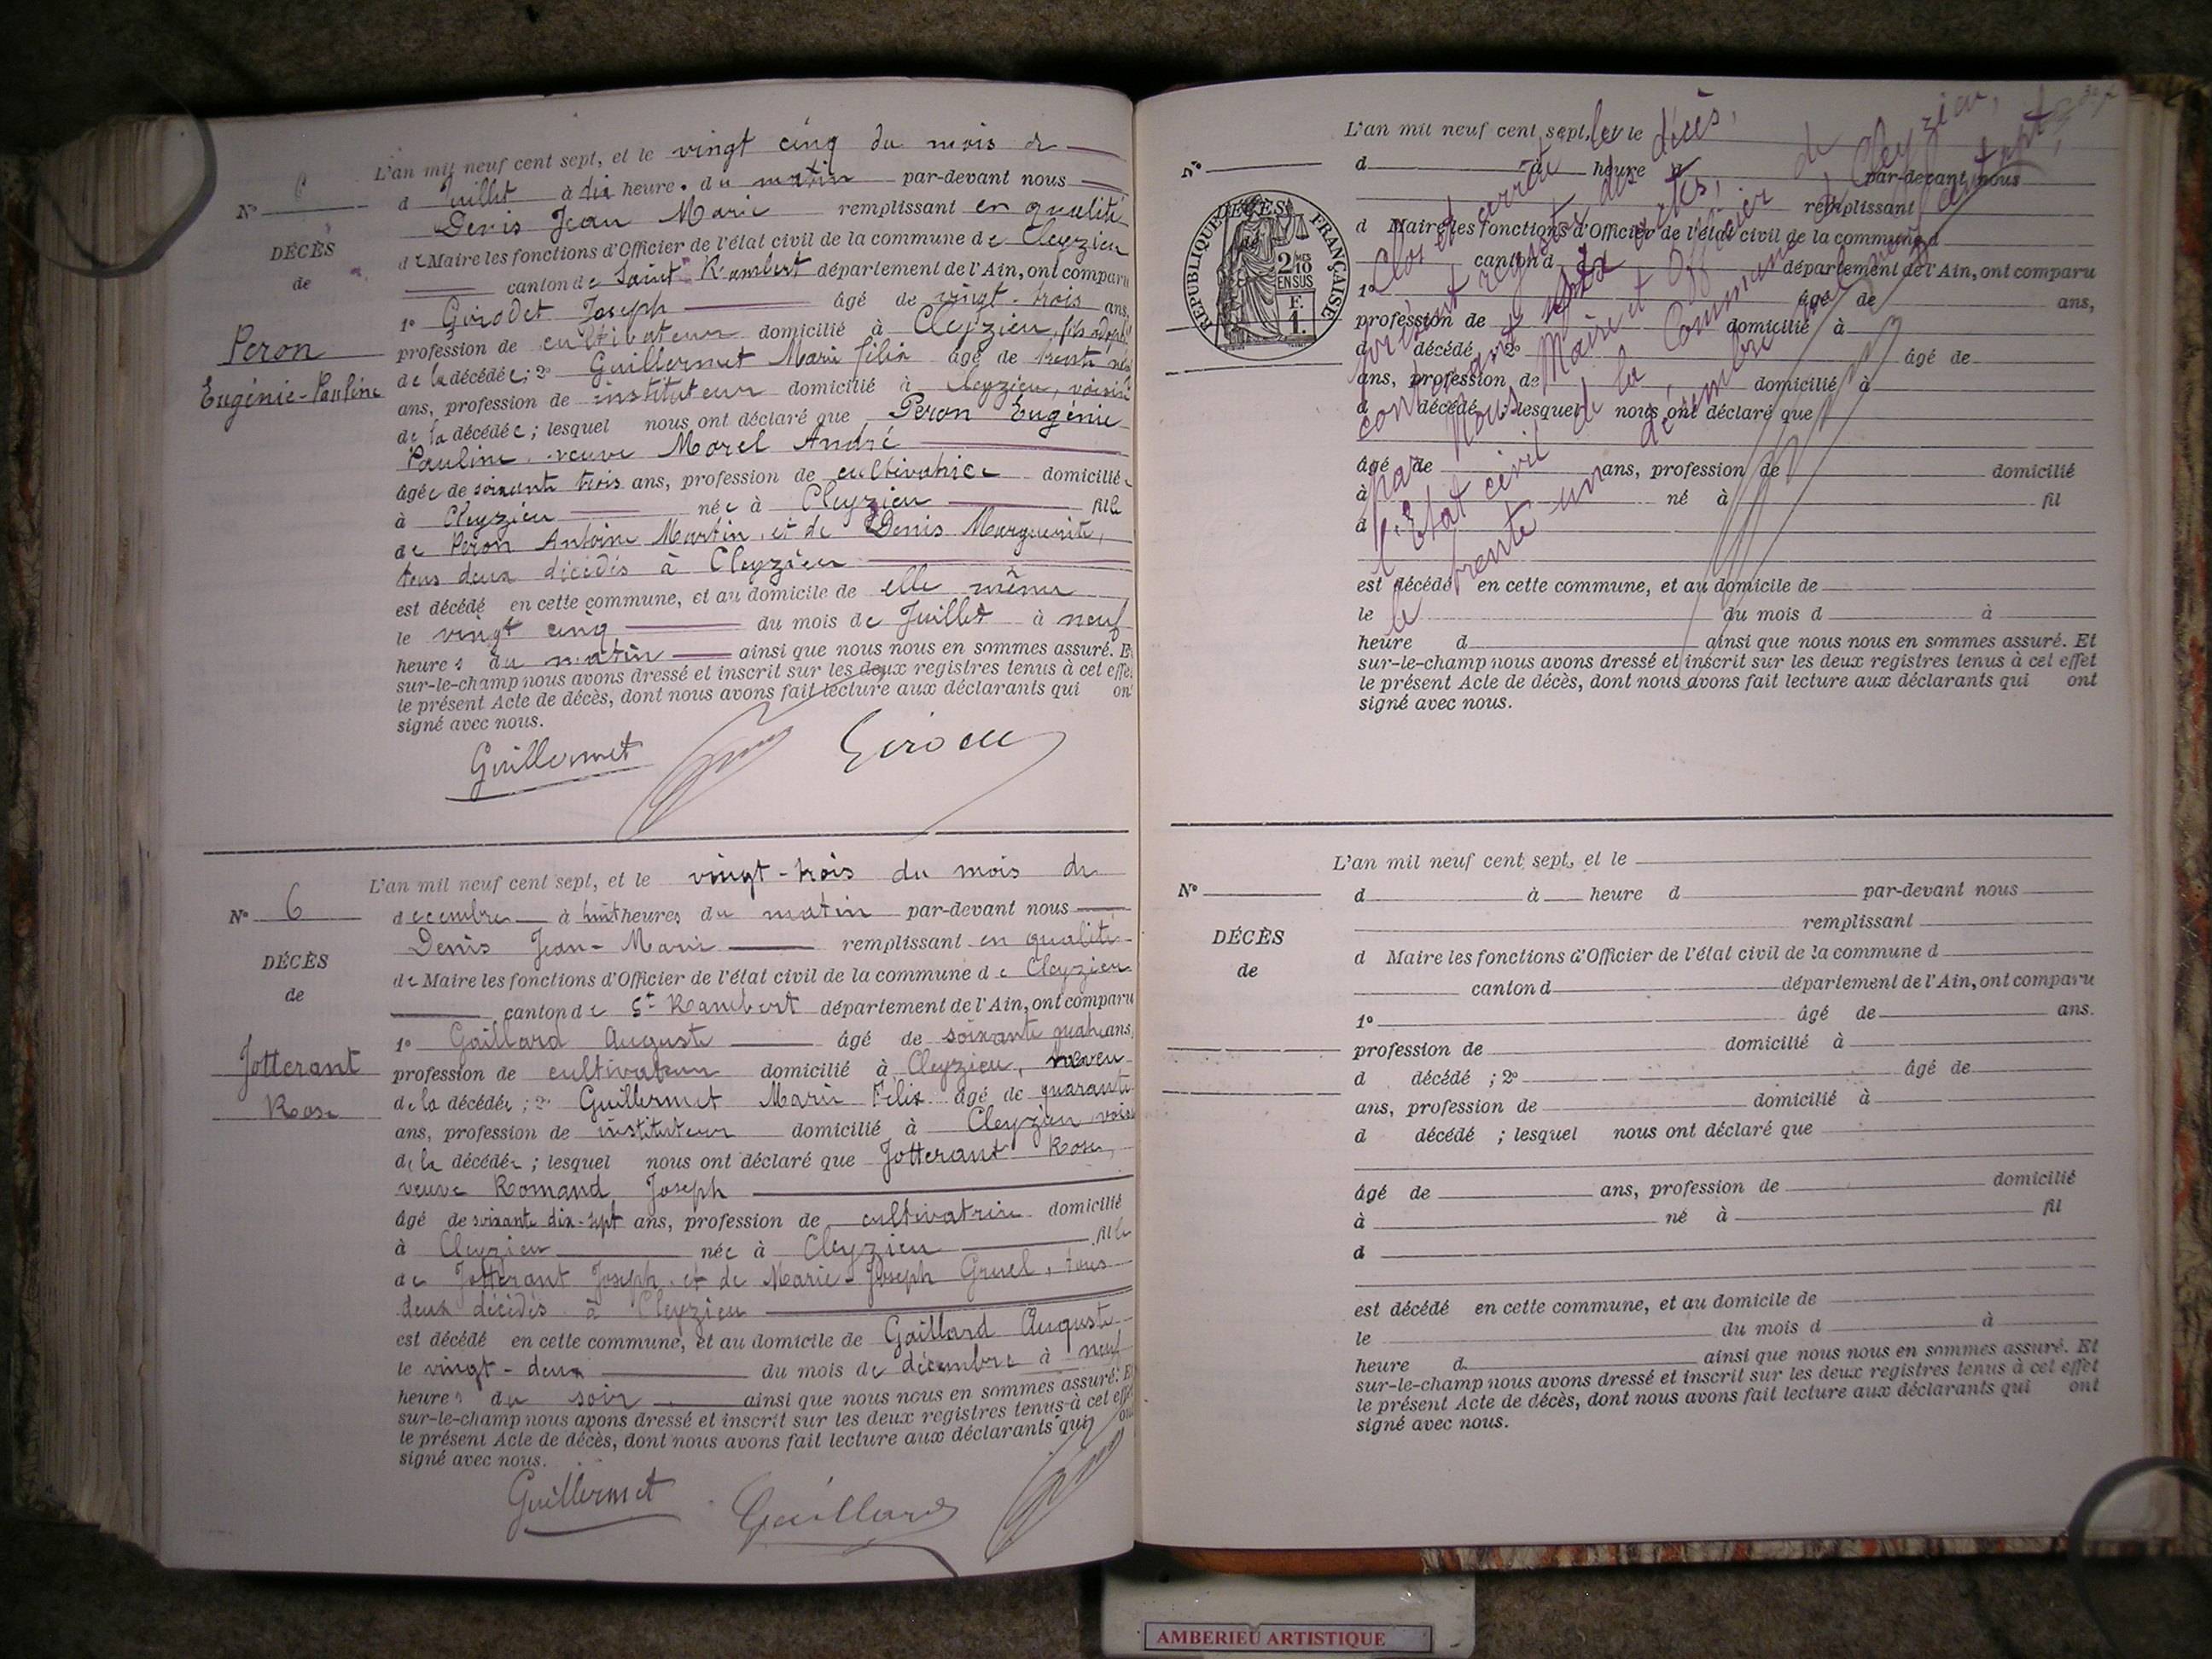 L'an mil neuf cent sept, et le vingt cinq du mois de
N° 6
d Juillet à dix heures du matin par-devant nous
Denis Jean Marie remplissant en qualité
DÉCÈS
de Maire les fonctions d'Officier de l'état civil de la commune de Cleyzieu
de
canton de Saint Rambert département de l'Ain, ont comparu
1° Girodet Joseph âgé de vingt-trois ans,
Peron
profession de cultivateur domicilié à Cleyzieu, fils
Eugénie-Pauline
de la décédée; 2° Guillermet Marie Félix âgé de trente
ans, profession de instituteur domicilié à Cleyzieu, voisin
de la décédée; lesquel nous ont déclaré que Peron Eugénie
Pauline veuve Morel André
âgée de soixante trois ans, profession de cultivatrice domiciliée
à Cleyzieu née à Cleyzieu fille
de Peron Antoine Martin et de Denis Marguerite,
tous deux décédés à Cleyzieu
est décédé en cette commune, et au domicile de elle même
le vingt cinq du mois de Juillet à neuf
heures du matin ainsi que nous nous en sommes assuré. Et
sur-le-champ nous avons dressé et inscrit sur les deux registres tenus à cet effet
le présent Acte de décès, dont nous avons fait lecture aux déclarants qui ont
signé avec nous.
Guillermet
L'an mil neuf cent sept, et le vingt-trois du mois de
N° 6
decembre à huit heures du matin par-devant nous
Denis Jean-Marie remplissant en qualité
de Maire les fonctions d'Officier de l'état civil de la commune de Cleyzieu
DÉCÈS
de
canton de St Rambert département de l'Ain, ont comparu
1° Gaillard Auguste âgé de soixante quatre ans,
Jotterant
profession de cultivateur domicilié à Cleyzieu, neveu
Rose
de la décédée; 2° Guillermet Marie Félix âgé de quarante
ans, profession de instituteur domicilié à Cleyzieu, voisin
de la décédée; lesquel nous ont déclaré que Jotterant Rose,
veuve Romand Joseph
âgé de soixante dix-sept ans, profession de cultivatrice domicilié
à Cleyzieu née à Cleyzieu fille
de Jotterant Joseph et de Marie-Joseph Gruel, tous
deux décédés à Cleyzieu
est décédé en cette commune, et au domicile de Gaillard Auguste
le vingt-deux du mois de décembre à neuf
heures du soir ainsi que nous nous en sommes assuré. Et
sur-le-champ nous avons dressé et inscrit sur les deux registres tenus à cet effet
le présent Acte de décès, dont nous avons fait lecture aux déclarants qui ont
signé avec nous.
Guillermet Gaillard
L'an mil neuf cent sept, et le
N°
d à heure d par-devant nous
remplissant
d Maire les fonctions d'Officier de l'état civil de la commune d
canton d département de l'Ain, ont comparu
1° âgé de ans,
profession de domicilié à
d décédé ; 2° âgé de
ans, profession de domicilié à
d décédé ; lesquel nous ont déclaré que
âgé de ans, profession de domicilié
à né à fil
d
est décédé en cette commune, et au domicile de
le du mois d à
heure d ainsi que nous nous en sommes assuré. Et
sur-le-champ nous avons dressé et inscrit sur les deux registres tenus à cet effet
le présent Acte de décès, dont nous avons fait lecture aux déclarants qui ont
signé avec nous.
RÉPUBLIQUE FRANÇAISE
DÉCÈS
2 MES
10
EN SUS
F.
1.
Clos et arrêté le
présent registre des décès,
contenant six actes,
par Nous Maire et Officier de
l'Etat civil de la Commune de Cleyzieu,
le trente un décembre mil neuf cent sept,
L'an mil neuf cent sept, et le
N°
d à heure d par-devant nous
remplissant
DÉCÈS
d Maire les fonctions d'Officier de l'état civil de la commune d
de
canton d département de l'Ain, ont comparu
1° âgé de ans.
profession de domicilié à
d décédé ; 2° âgé de
ans, profession de domicilié à
d décédé ; lesquel nous ont déclaré que
âgé de ans, profession de domicilié
à né à fil
d
est décédé en cette commune, et au domicile de
le du mois d à
heure d ainsi que nous nous en sommes assuré. Et
sur-le-champ nous avons dressé et inscrit sur les deux registres tenus à cet effet
le présent Acte de décès, dont nous avons fait lecture aux déclarants qui ont
signé avec nous.
AMBERIEU ARTISTIQUE